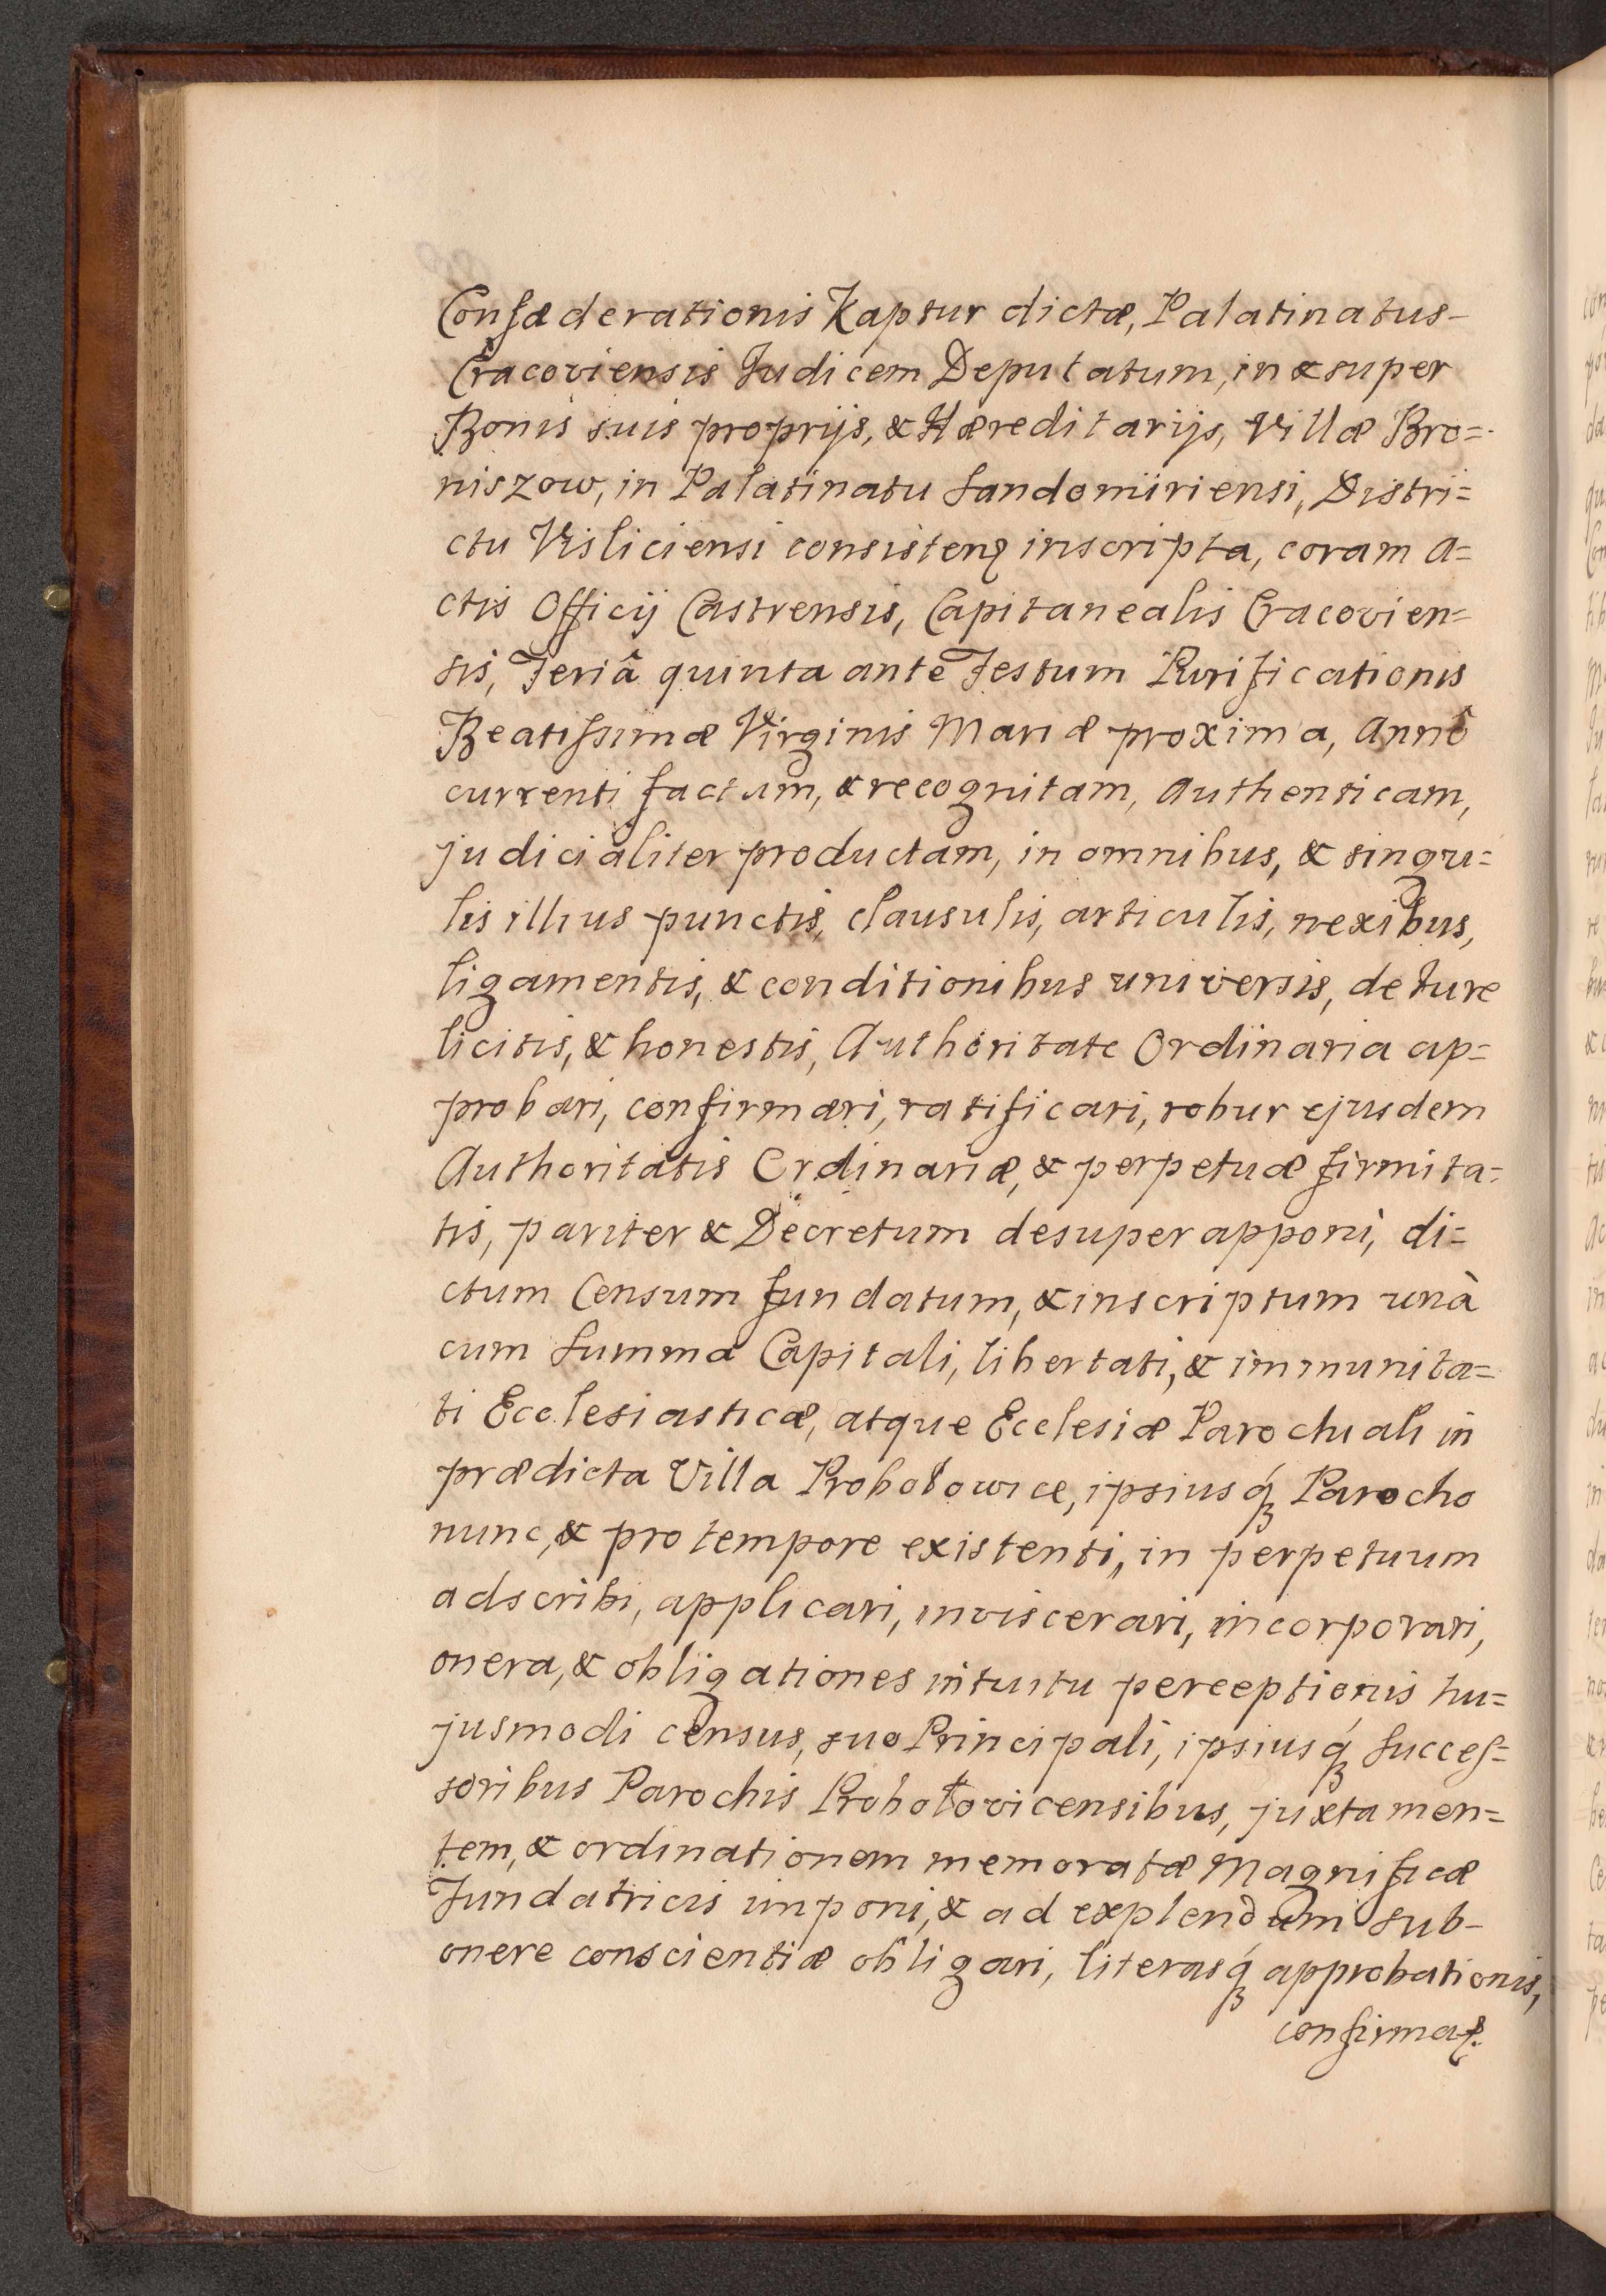 Confæderationis Kaptur dictæ, Palatinatus-
Cracoviensis Judicem Deputatum, in & super
Bonis suis proprijs, & Hæreditarijs, Villæ Bro=
niszow, in Palatinatu Sandomiriensi, Distri=
ctu Visliciensi consisten₎ inscripta, coram A=
ctis Officij Castrensis, Capitanealis Cracovien=
sis, Feriâ quinta ante Festum Purificationis
Beatissimæ Virginis Mariæ proxima, Annô
currenti factum, & recognitam, Authenticam,
judicialiter productam, in omnibus, & singu=
lis illius punctis, clausulis, articulis, nexibus,
ligamentis, & conditionibus universis, de Iure
licitis, & honestis, Authoritate Ordinaria ap=
probari, confirmari, ratificari, robur ejusdem
Authoritatis Ordinariæ, & perpetuæ firmita=
tis, pariter & Decretum desuper apponi, di=
ctum Censum fundatum, & inscriptum unà
cum Summa Capitali, libertati, & immunita=
ti Ecclesiasticæ, atque Ecclesiæ Parochiali in
prædicta Villa Probołowice, ipsiusq́ꝫ Parocho
nunc, & pro tempore existenti, in perpetuum
adscribi, applicari, inviscerari, incorporari,
onera, & obligationes intuitu perceptionis hu=
jusmodi census, suo Principali, ipsiusq́ꝫ Succes=
soribus Parochis Probołovicensibus, juxta men=
tem, & ordinationem memoratæ Magnificæ
Fundatricis imponi, & ad explendum sub-
onere conscientiæ obligari, literasq́ꝫ approbationis,
confirmaȝ.